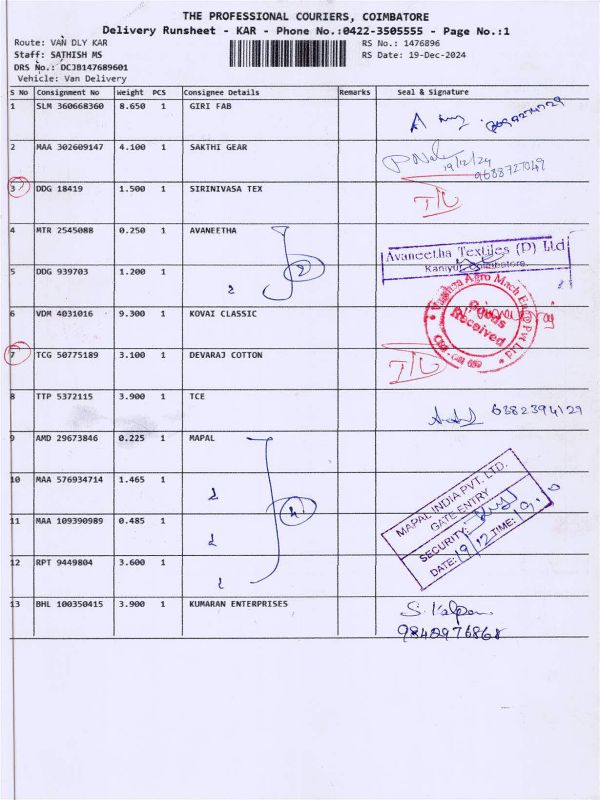 THE PROFESSIONAL COURIERS, COIMBATORE
Delivery Runsheet - KAR - Phone No.:0422-3505555 - Page No.:1
Route: VAN DLY KAR RS No.: 1476896
Staff: SATHISH MS RS Date: 19-Dec-2024
DRS No.: DCJB147689601
Vehicle: Van Delivery
S No Consignment No Weight PCS Consignee Details Remarks Seal & Signature
1 SLM 360668360 8.650 1 GIRI FAB
2 MAA 302609147 4.100 1 SAKTHI GEAR
19/12/24
9688727049
3 DDG 18419 1.500 1 SIRINIVASA TEX
4 MTR 2545088 0.250 1 AVANEETHA
Avaneetha Textiles (P) Ltd
Kaniyur, Coimbatore.
5 DDG 939703 1.200 1
2 2
6 VDM 4031016 9.300 1 KOVAI CLASSIC
Agro Mach
Goods
Received
7 TCG 50775189 3.100 1 DEVARAJ COTTON
8 TTP 5372115 3.900 1 TCE
6382394129
9 AMD 29673846 0.225 1 MAPAL
MAPAL INDIA PVT. LTD.
GATE ENTRY
SECURITY:
DATE: 19/12 TIME: 19.10
10 MAA 576934714 1.465 1
2
11 MAA 109390989 0.485 1
4
2
12 RPT 9449804 3.600 1
2
13 BHL 100350415 3.900 1 KUMARAN ENTERPRISES
S. Kalpan
9840976868